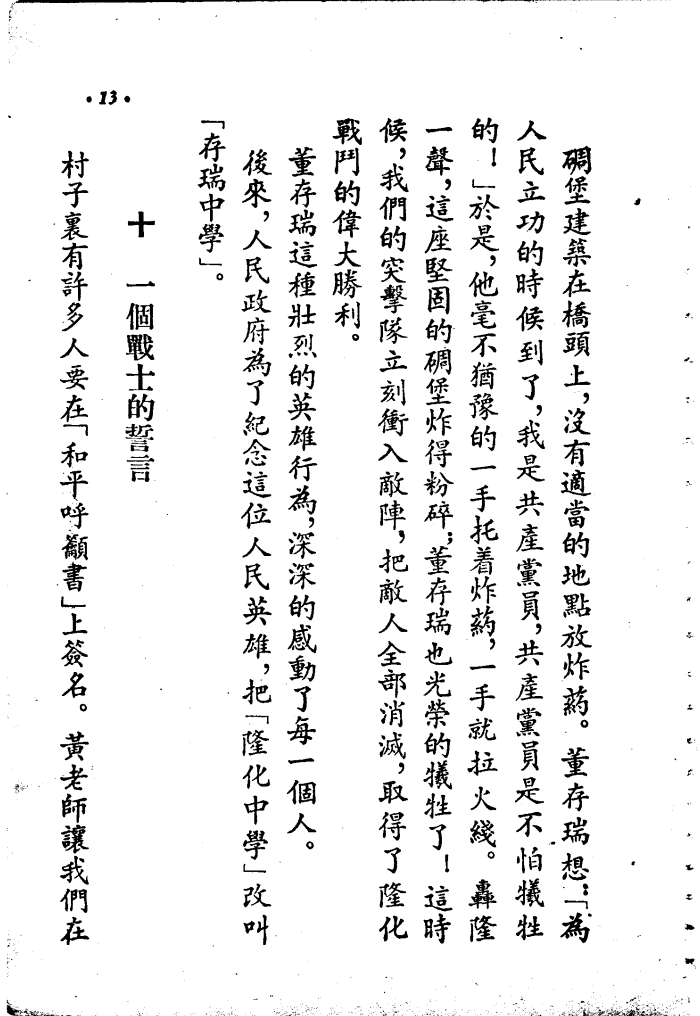 ·13·
碉堡建築在橋頭上，沒有適當的地點放炸葯。董存瑞想：「為
人民立功的時候到了，我是共產黨員，共產黨員是不怕犧牲
的！」於是，他毫不猶豫的一手托着炸葯，一手就拉火綫。轟隆
一聲，這座堅固的碉堡炸得粉碎；董存瑞也光榮的犧牲了！這時
候，我們的突擊隊立刻衝入敵陣，把敵人全部消滅，取得了隆化
戰鬥的偉大勝利。
董存瑞這種壯烈的英雄行為，深深的感動了每一個人。
後來，人民政府為了紀念這位人民英雄，把「隆化中學」改叫
「存瑞中學」。
十 一個戰士的誓言
村子裏有許多人要在「和平呼籲書」上簽名。黃老師讓我們在